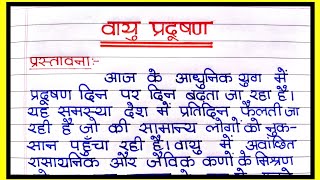 वायु प्रदूषण
प्रस्तावना:-
आज के आधुनिक युग में
प्रदूषण दिन पर दिन बढ़ता जा रहा है।
यह समस्या देश में प्रतिदिन फैलती जा
रही है जो की सामान्य लोगों को नुक-
सान पहुँचा रही है। वायु में अवांछित
रासायनिक और जैविक कणों के मिश्रण